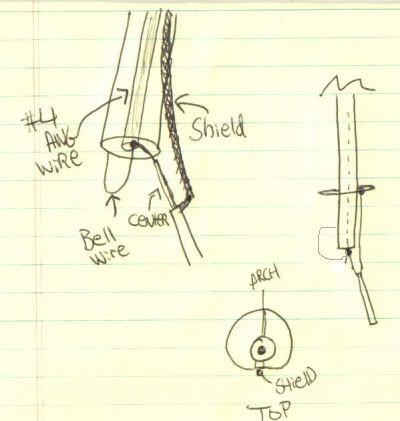 #4
AWG
WiRe
Shield
CENTER
Bell
wire
ARCH
SHiELD
TOP